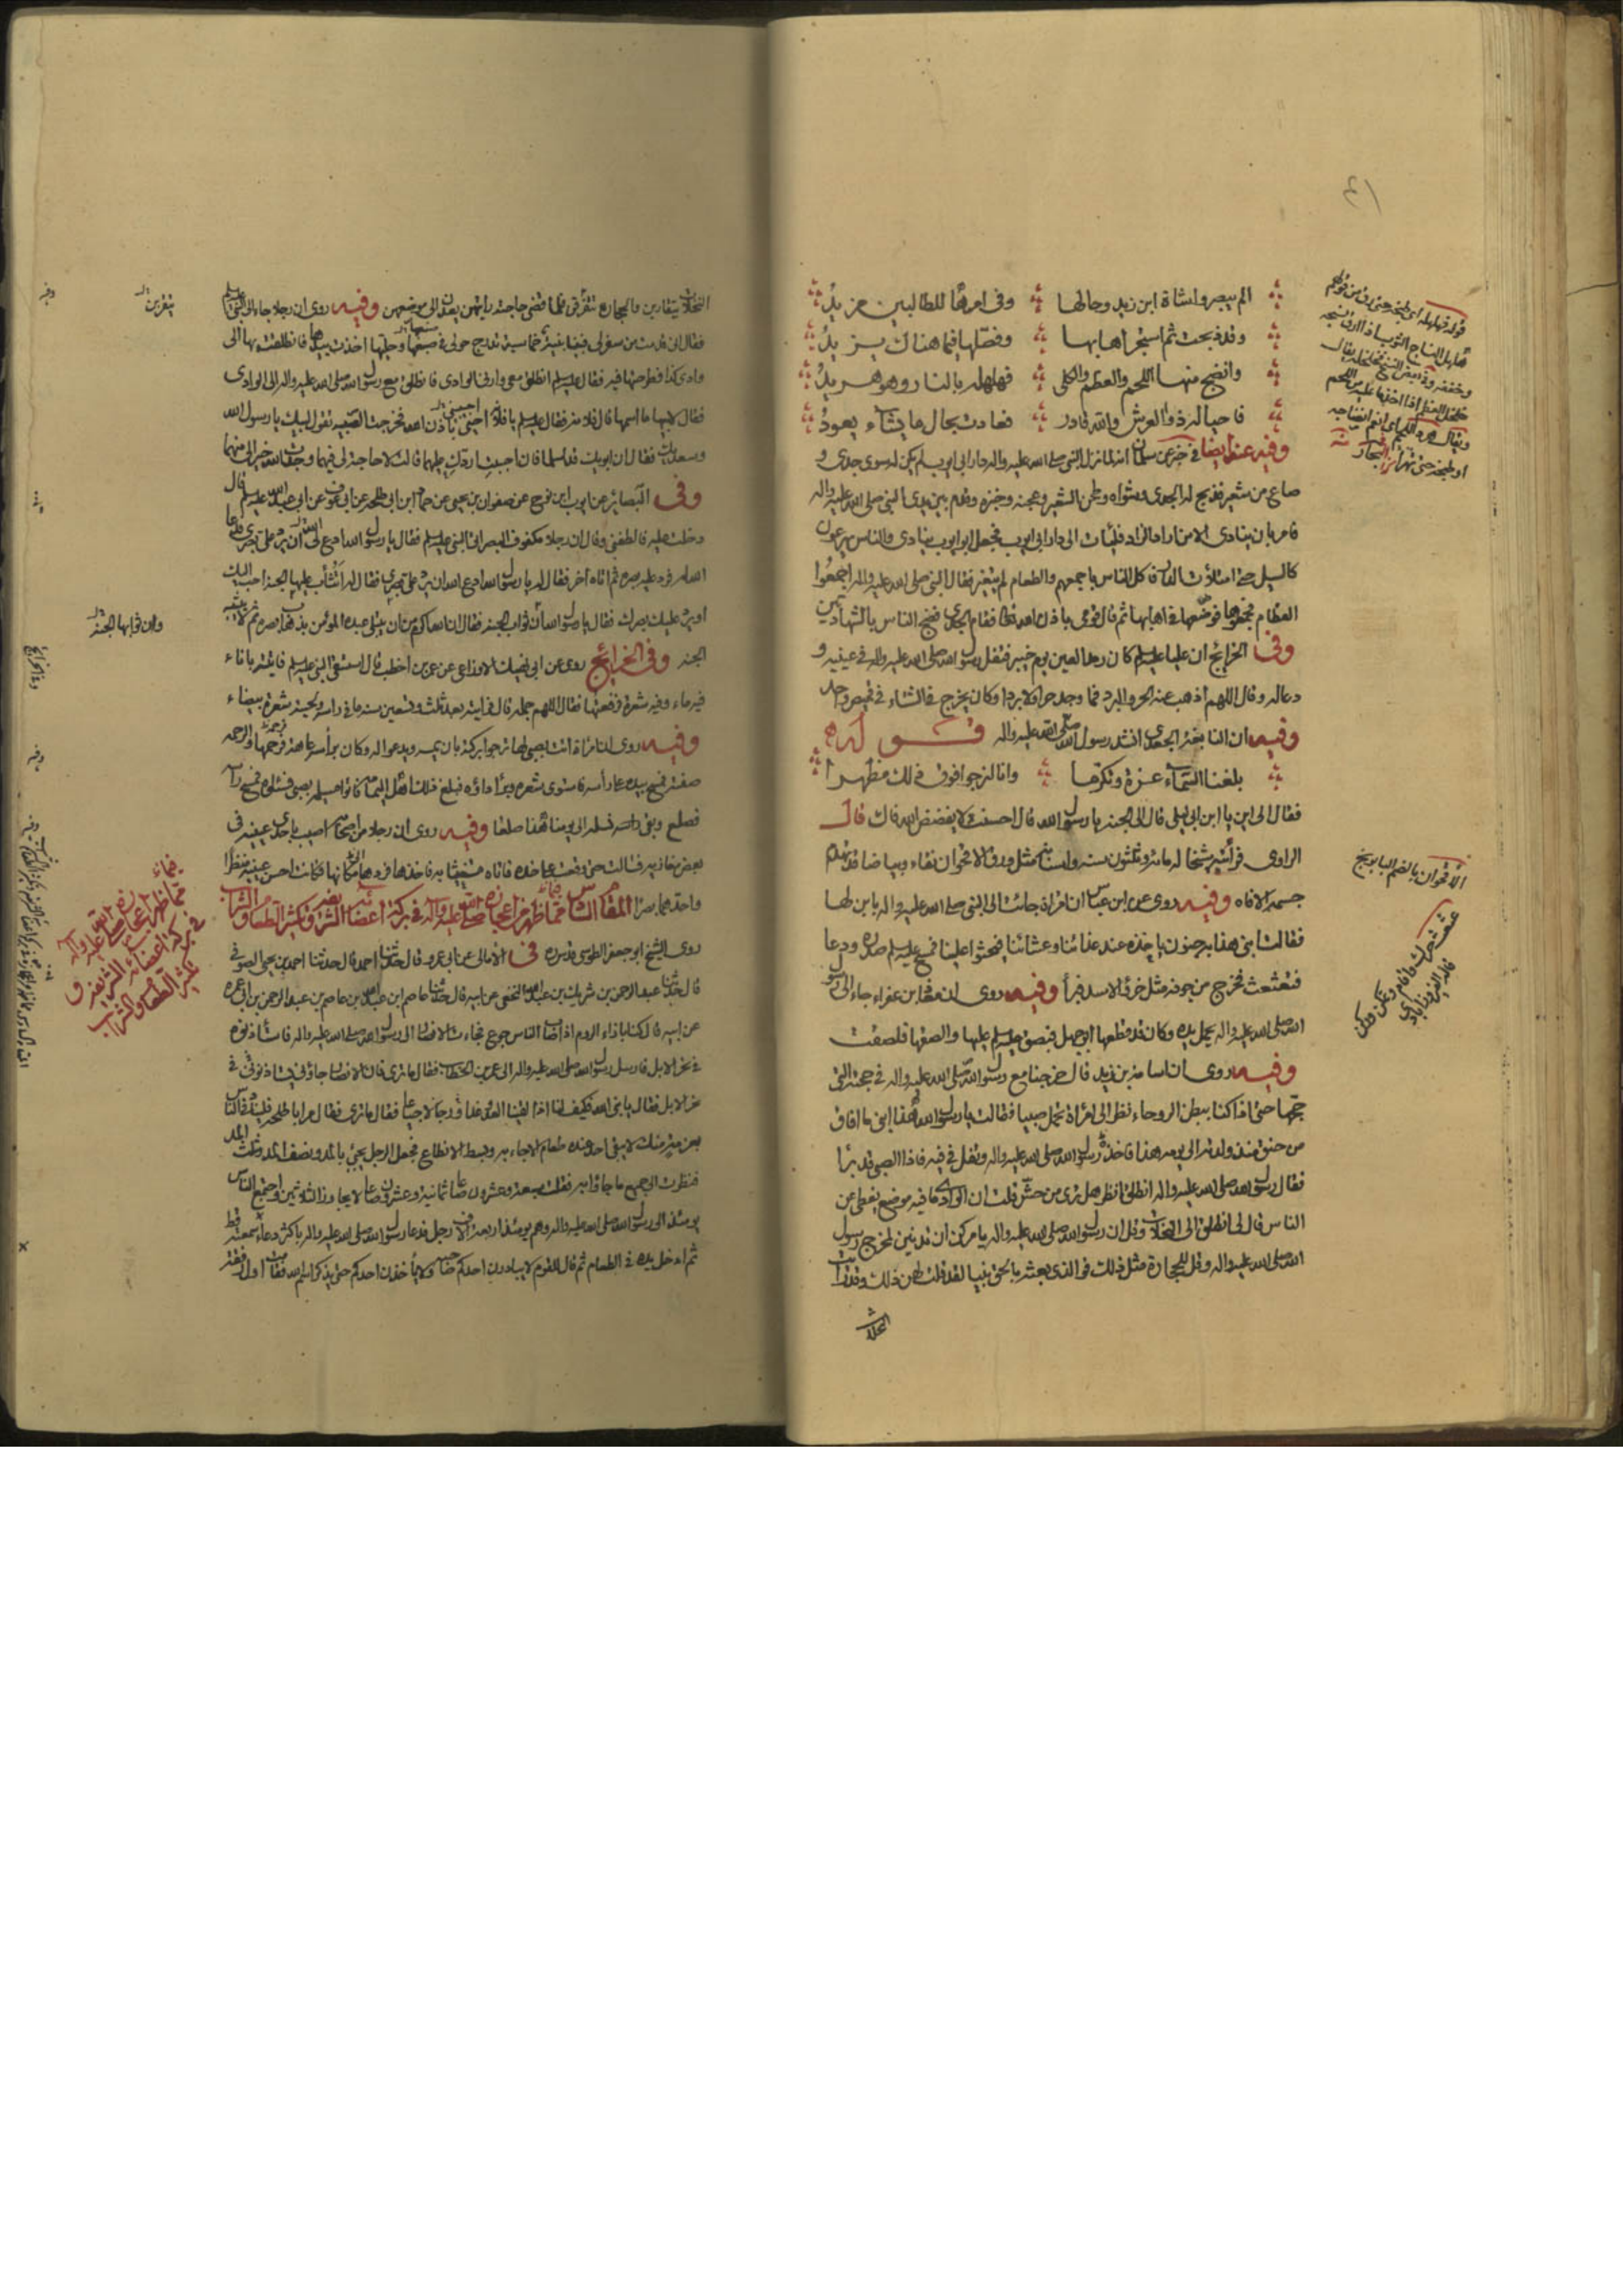 الم يبصروا شاة ابن زيد وحالها وفي امرها للطالبين مزيدُ
وقد ذبحت ثم استجر اهابها وفصلها فيما هناك يزيدُ
وانضج منها اللحم والعظم والكلى فهلهله بالنار وهو هريدُ
فاحيا له ذو العرش والله قادر فعادت بحال ما يشآء يعودُ
وفيه عنه ايضا في خبر عن سلمان انه لما نزل النبي صلى الله عليه واله دار ابي ايوب لم يكن له سوى جدي و
صاع من شعير فذبح له الجدي وشواه وطحن الشعير وعجنه وخبزه وقدم بين يدي النبي صلى الله عليه واله
فامر بان ينادي الا من اراد الزاد فليأت الى دار ابي ايوب فجعل ابو ايوب ينادي والناس يهرعون
كالسيل حتى امتلأت الدار فاكل الناس باجمعهم والطعام لم يتغير فقال النبي صلى الله عليه واله اجمعوا
العظام فجمعوها فوضعها في اهابها ثم قال قومي باذن الله تعالى فقام الجدي فضج الناس بالشهادتين
وفي الخرائج ان عليا عليه السلم كان رمد العين يوم خيبر فتفل رسول الله صلى الله عليه واله في عينيه و
دعا له وقال اللهم اذهب عنه الحر والبرد فما وجد حرا ولا بردا وكان يخرج في الشتاء في قميص واحد
وفيه ان النابغة الجعدي انشد رسول الله صلى الله عليه واله قوله
بلغنا السماء عزة وتكرما وانا لنرجو فوق ذلك مظهرا
فقال الى اين يا ابن ابي ليلى قال الى الجنة يا رسول الله قال احسنت لا يفضض الله فاك قال
الراوي فرأيته شيخا له مائة وثلثون سنة واسنانه مثل ورق الاقحوان نقاء وبياضا قد تهدم
جسمه الا فاه وفيه روي عن ابن عباس ان امراة جائت الى النبي صلى الله عليه واله بابن لها
فقالت ابني هذا به جنون ياخذه عند غدائنا وعشائنا فيحثو علينا فمسح عليه السلم صدره ودعا
فثعثعث فخرج من جوفه مثل خرؤ الاسد فبرأ وفيه روي ان معاذ بن عفراء جاء الى رسول
الله صلى الله عليه واله يحمل يده وكان قد قطعها ابو جهل فبصق عليه السلم عليها والصقها فلصقت
وفيه روي ان اسامة بن زيد قال خرجنا مع رسول الله صلى الله عليه واله في حجته التي
حجها حتى اذا كنا ببطن الروحاء نظر الى امرأة تحمل صبيا فقالت يا رسول الله هذا ابني ما افاق
من خنق منذ ولدته الى يومه هذا فاخذه رسول الله صلى الله عليه واله وتفل في فيه فاذا الصبي قد برأ
فقال رسول الله صلى الله عليه واله انطلق انظر هل ترى من حش قلت ان الوادي ما فيه موضع يغطي عن
الناس قال لي انطلق الى النخلات وقل ان رسول الله صلى الله عليه واله يامركن ان تدنين لمخرج رسول
الله صلى الله عليه واله وقل للحجارة مثل ذلك فوالذي بعثه بالحق نبيا لقد قلت لهن ذلك وقد رايت
النخلات
الاقحوان بالضم البابونج
النخلات يتقاربن والحجارة يتفرقن فلما قضى حاجته رايتهن يعدن الى موضعهن وفيه روي ان رجلا جاء الى النبي
فقال اني قدمت من سفر لي فبينا بنية خماسية تدرج حولي في صبغها وحليها اخذت بيدها فانطلقت بها الى
وادي كذا فطرحتها فيه فقال عليه السلم انطلق معي وارني الوادي فانطلق مع رسول الله صلى الله عليه واله الى الوادي
فقال لابيها ما اسمها قال فلانة فقال عليه السلم يا فلانة اجيبيني باذن الله فخرجت الصبية تقول لبيك يا رسول الله
وسعديك فقال ان ابويك قد اسلما فان احببت اردك عليهما قالت لا حاجة لي فيهما وجدت الله خيرا لي منهما
وفي البصائر عن ايوب ابن نوح عن صفوان بن يحيى عن حماد ابن ابي طلحة عن ابي عوف عن ابي عبد الله عليه السلم قال
دخلت عليه فالطفني وقال ان رجلا مكفوف البصر اتى النبي عليه السلم فقال يا رسول الله ادع الله لي ان يرد علي بصري فدعا
الله له فرد عليه بصره ثم اتاه آخر فقال له يا رسول الله ادع الله ان يرد علي بصري فقال له اتثاب عليها الجنة احب اليك
او يرد عليك بصرك فقال يا رسول الله وان ثوابها الجنة فقال ان الله اكرم من ان يبتلي عبده المؤمن بذهاب بصره ثم لا يثيبه
الجنة وفي الخرائج روي عن ابي نهيك الازدي عن عمرو بن اخطب قال استسقى النبي عليه السلم فاتيته باناء
فيه ماء وفيه شعرة فرفعتها فقال اللهم جمله قال فرايته بعد ثلث وتسعين سنة ما في راسه ولحيته شعرة بيضاء
وفيه روي ان امرأة اتت بصبي لها ترجو بركته بان يمسه ويدعو له وكان برأسه عاهة فرحمها والرحمة
صفته فمسح بيده على رأسه فاستوى شعره وبرأ داؤه فبلغ ذلك اهل اليمامة فاتوا مسيلمة بصبي فسئلوه فمسح رأسه
فصلع وبقي نسله الى يومنا هذا صلعا وفيه روي ان رجلا من اصحابه اصيب باحدى عينيه في
بعض مغازيه فسالت حتى وقعت على خده فاتاه مستغيثا به فاخذها فردها مكانها فكانت احسن عينيه منظرا
واحدهما بصرا المقام الثالث مما ظهر من اعجازه صلى الله عليه وآله في بركة اعضائه الشريفة وتكثير الطعام والشراب
روى الشيخ ابو جعفر الطوسي قدس سره في الامالي عن ابي عمرو قال حدثنا احمد قال حدثنا احمد بن يحيى الصوفي
قال حدثنا عبد الرحمن بن شريك بن عبد الله النخعي عن ابيه قال حدثنا عاصم ابن عبيد الله بن عاصم بن عبد الرحمن بن ابي عمرة
عن ابيه قال كنا بازاء الروم اذ اصاب الناس جوع فجاءت الانصار الى رسول الله صلى الله عليه واله فاستأذنوه
في نحر الابل فارسل رسول الله صلى الله عليه واله الى عمر بن الخطاب فقال ما ترى فان الانصار جاؤني يستاذنوني في
نحر الابل فقال يا نبي الله فكيف لنا اذا لقينا العدو غدا رجالا جياعا فقال ما ترى فقال مر ابا طلحة فليناد في الناس
بعزمة منك لا يبقى احد عنده طعام الا جاء به وبسط الانطاع فجعل الرجل يجيئ بالمد ونصف المد وثلث المد
فنظرت الى جميع ما جاؤا به فقلت سبعة وعشرون صاعا ثمانية وعشرون صاعا لا يجاوز الثلاثين واجتمع الناس
يومئذ الى رسول الله صلى الله عليه واله وهم يومئذ اربعة الاف رجل فدعا رسول الله صلى الله عليه واله باكثر دعاء سمعته قط
ثم ادخل يده في الطعام ثم قال للقوم لا يبادرن احدكم صاحبه ولا يأخذن احدكم حتى يذكر اسم الله فقامت اول رفقة
يتفرقن
وان ثوابها الجنة
مما ظهر من اعجازه صلى الله عليه وآله
في بركة اعضائه الشريفة و
تكثير الطعام والشراب